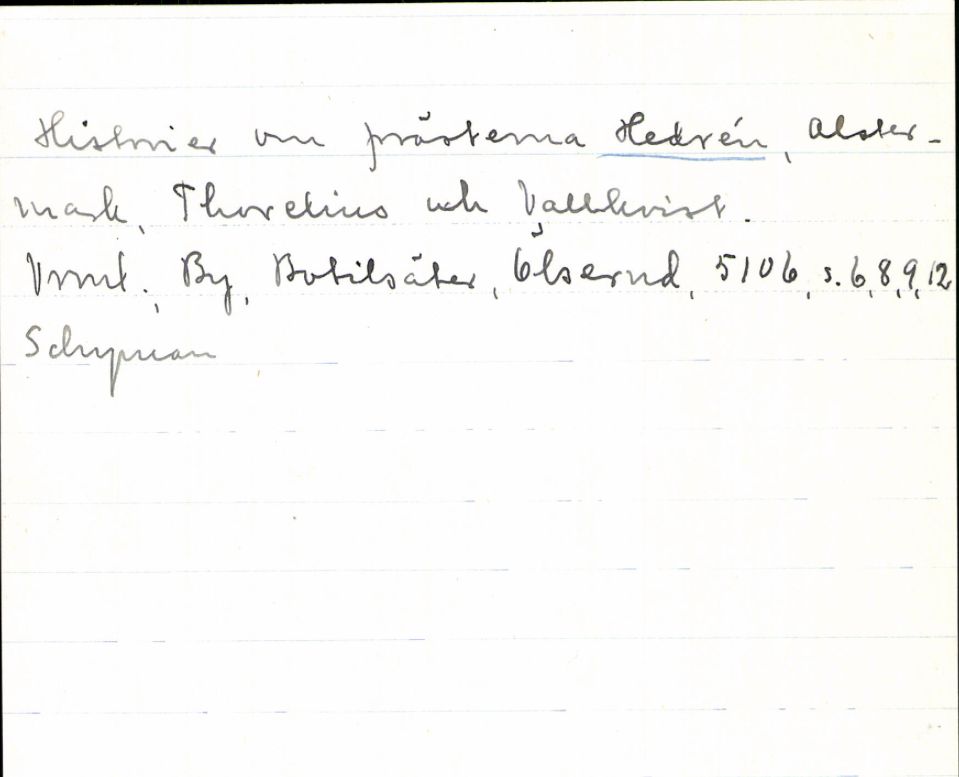 Historier om prästerna Hedrén, Alster-
mark, Thorelius och Vallkvist.
Vrml., By, Botilsäter, Ölserud, 5106, s. 6, 8, 9, 12